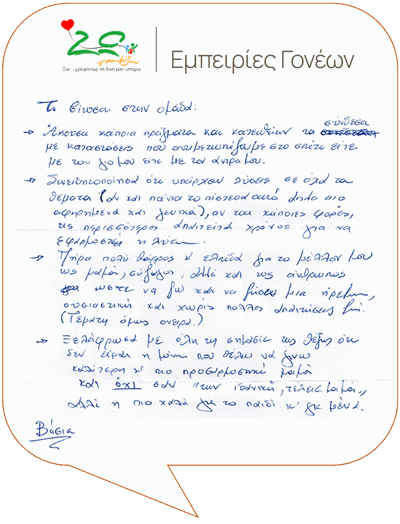 Ζω ...γράφοντας τη δική μου ιστορία
Εμπειρίες Γονέων
Τι βίωσα στην ομάδα:
→ Άκουσα κάποια πράγματα και κατευθείαν τα σύνδεσα
με καταστάσεις που αντιμετωπίζουμε στο σπίτι είτε
με τον γιο μου είτε με τον άντρα μου.
→ Συνειδητοποίησα ότι υπάρχουν λύσεις σε όλα τα
θέματα (αν και πάντα το πίστευα αυτό αλλά πιο
αφηρημένα και γενικά), αν και κάποιες φορές,
τις περισσότερες απαιτείται χρόνος για να
εφαρμοστεί η λύση.
→ Πήρα πολύ θάρρος & ελπίδα για το μέλλον μου
ως μαμά, σύζυγος, αλλά και ως άνθρωπος
ώστε να ζω και να βιώσω μια ήρεμη,
ουσιαστική και χωρίς πολλές απαιτήσεις ζωή.
(Γεμάτη όμως όνειρα.)
→ Ξελάφρωσα με όλη τη σημασία της λέξης ότι
δεν είμαι η μόνη που θέλω να γίνω
καλύτερη κ' πιο προσαρμοστική μαμά
και όχι σαν "την ιδανική, τέλεια μαμά,,
αλλά η πιο καλή για το παιδί κ' για μένα.
Βάσια